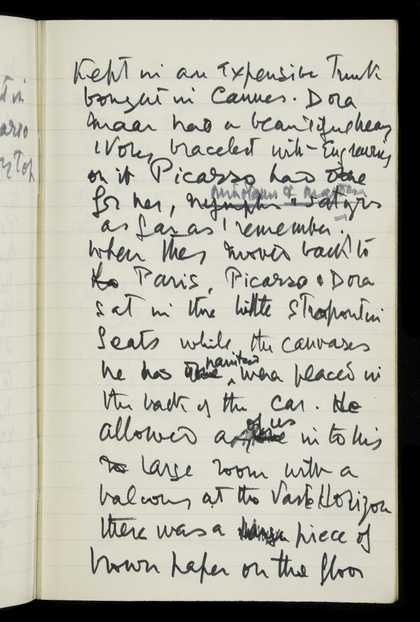 Kept in an Expensive Trunk
bought in Cannes. Dora
Maar had a beautiful heavy
ivory bracelet with Engraving
on it Picasso had done
for her, nymphs & satyrs
as far as I remember.
When they moved back to
Paris, Picasso & Dora
sat in the little Strapontin
Seats while the canvases
he has painted were placed in
the back of the car. He
allowed a of us in to his
large room with a
balcony at the Vast Horizon
there was a piece of
brown paper on the floor